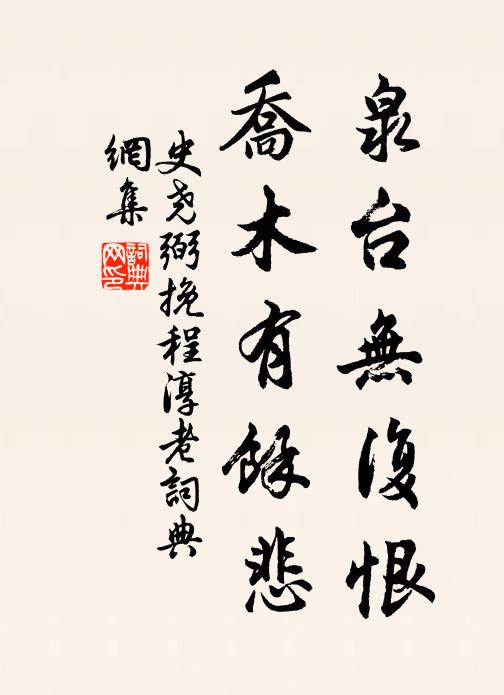 泉台無復恨
喬木有餘悲
史尧弼挽程淳老詞典
網集
詞典
网印